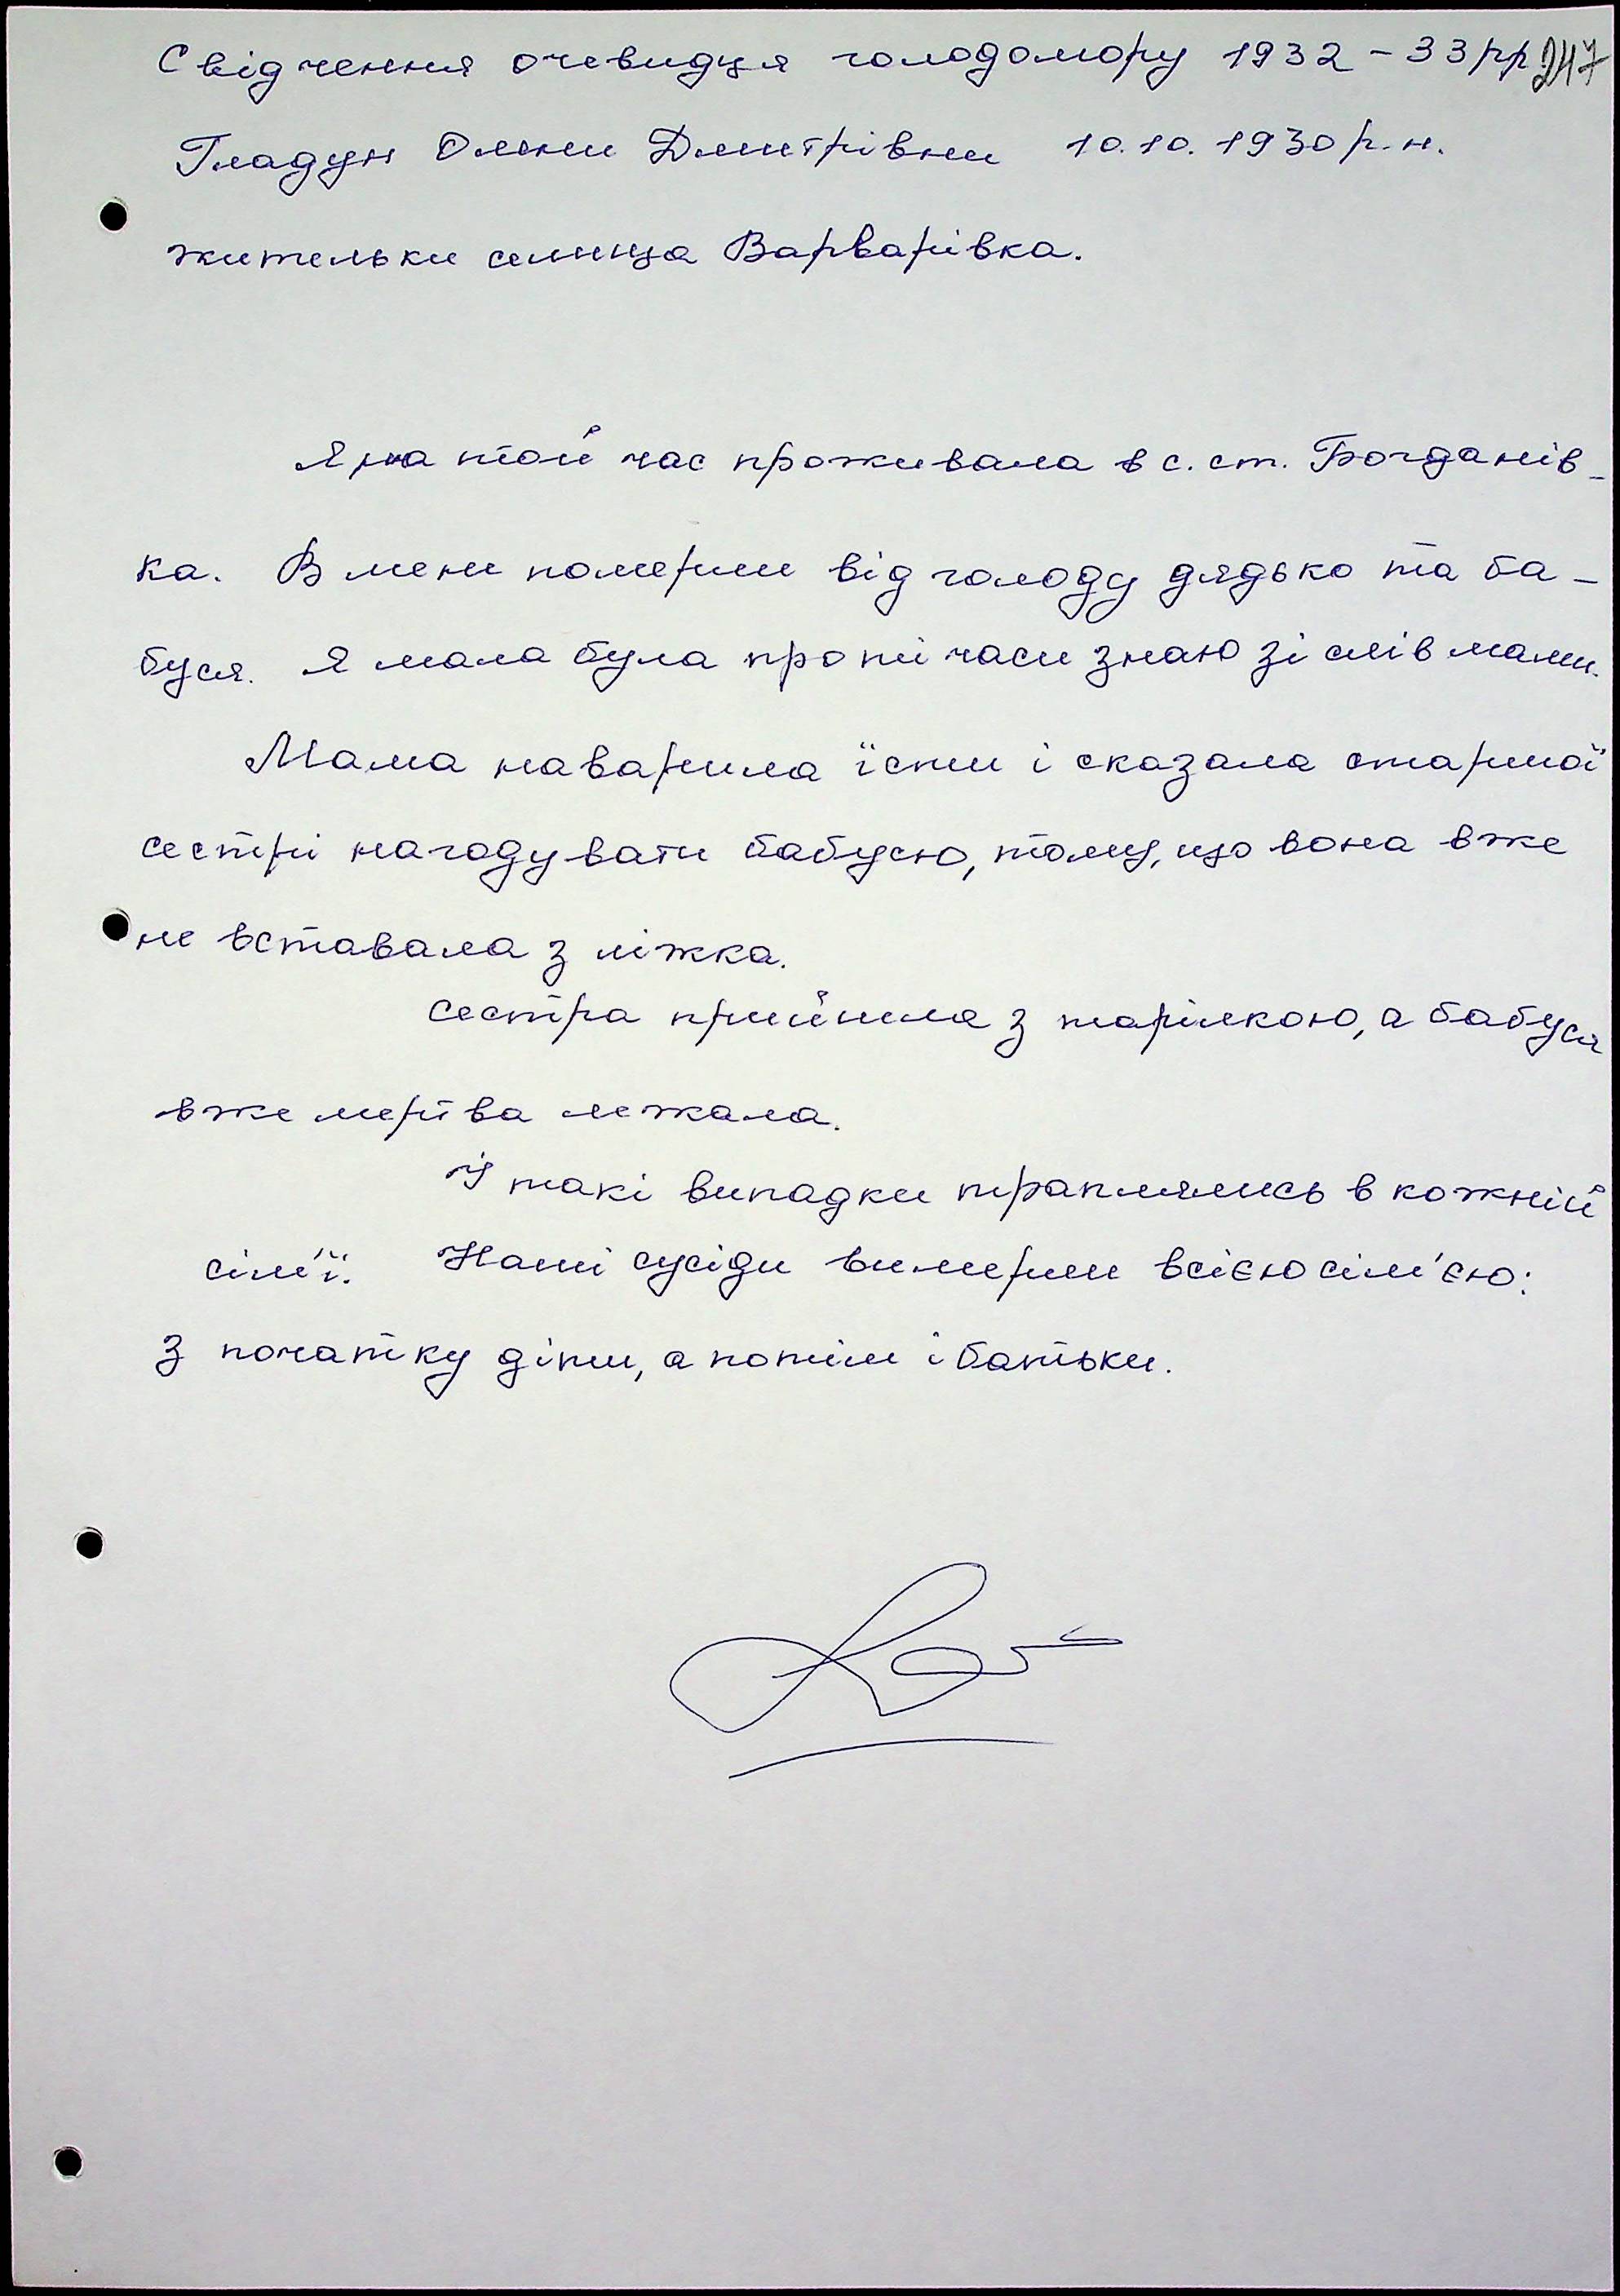 Свідчення очевидця голодомору 1932 - 33 рр 247
Гладун Олени Дмитрівни 10.10.1930 р.н.
жительки селища Варварівка.
Я на той час проживала в с. ст. Богданів-
ка. В мени померли від голоду дядько та ба-
буся. Я мала була про ті часи знаю зі слів мами.
Мама наварила їсти і сказала старшої
сестрі нагодувати бабусю, тому, що вона вже
не вставала з ліжка.
Сестра прийшла з тарілкою, а бабуся
вже мертва лежала.
І такі випадки траплялись в кожній
сім'ї. Наші сусіди вимерли всією сім'єю:
з початку діти, а потім і батьки.